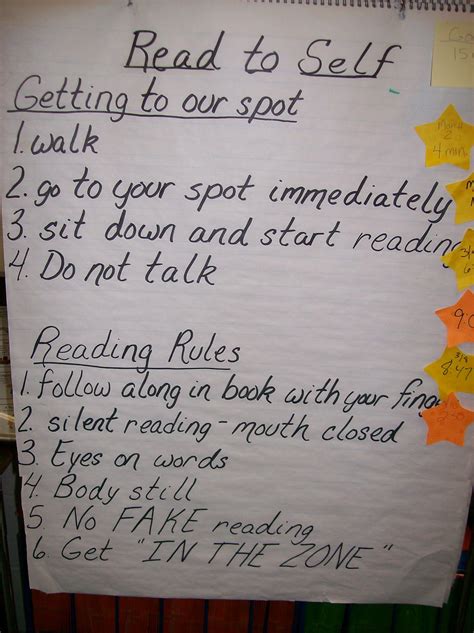 Read to Self
Getting to our spot
1. walk
2. go to your spot immediately
3. sit down and start reading
4. Do not talk
Reading Rules
1. follow along in book with your
2. silent reading - mouth closed
3. Eyes on words
4. Body still
5. No FAKE reading
6. Get "IN THE ZONE"
2
4 min
3/8
8:47